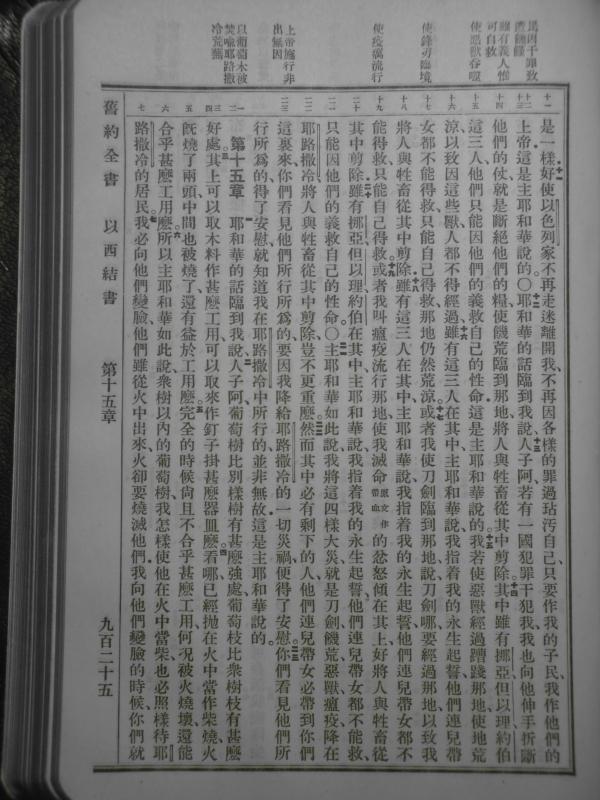 是因干罪致
罹饑饉
雖有義人惟
可自救
使惡獸吞噬
使鋒刃臨境
使疫癘流行
上帝施行非
出無因
以葡萄木被
焚喻耶路撒
冷荒蕪
是一樣好使以色列家不再走迷離開我不再因各樣的罪過玷污自己只要作我的子民我作他們的
上帝這是主耶和華說的〇耶和華的話臨到我說人子阿若有一國犯罪干犯我我也向他伸手折斷
他們的仗就是斷絕他們的糧使饑荒臨到那地將人與牲畜從其中剪除其中雖有挪亞但以理約伯
這三人他們只能因他們的義救自己的性命這是主耶和華說的我若使惡獸經過蹧踐那地使地荒
涼以致因這些獸人都不得經過雖有這三人在其中主耶和華說我指着我的永生起誓他們連兒帶
女都不能得救只能自己得救那地仍然荒涼或者我使刀劍臨到那地說刀劍哪要經過那地以致我
將人與牲畜從其中剪除雖有這三人在其中主耶和華說我指着我的永生起誓他們連兒帶女都不
能得救只能自己得救或者我叫瘟疫流行那地使我滅命原文作帶血的忿怒傾在其上好將人與牲畜從
其中剪除雖有挪亞但以理約伯在其中主耶和華說我指着我的永生起誓他們連兒帶女都不能救
只能因他們的義救自己的性命〇主耶和華如此說我將這四樣大災就是刀劍饑荒惡獸瘟疫降在
耶路撒冷將人與牲畜從其中剪除豈不更重麼然而其中必有剩下的人他們連兒帶女必帶到你們
這裏來你們看見他們所行所爲的要因我降給耶路撒冷的一切災禍便得了安慰你們看見他們所
行所爲的得了安慰就知道我在耶路撒冷中所行的並非無故這是主耶和華說的
第十五章 耶和華的話臨到我說人子阿葡萄樹比別樣樹有甚麼強處葡萄枝比衆樹枝有甚麼
好處其上可以取木料作甚麼工用可以取來作釘子掛甚麼器皿麼看哪已經抛在火中當作柴燒火
既燒了兩頭中間也被燒了還有益於工用麼完全的時候尙且不合乎甚麼工用何況被火燒壞還能
合乎甚麼工用麼所以主耶和華如此說衆樹以內的葡萄樹我怎樣使他在火中當柴也必照樣待耶
路撒冷的居民我必向他們變臉他們雖從火中出來火卻要燒滅他們我向他們變臉的時候你們就
舊約全書 以西結書 第十五章 九百二十五